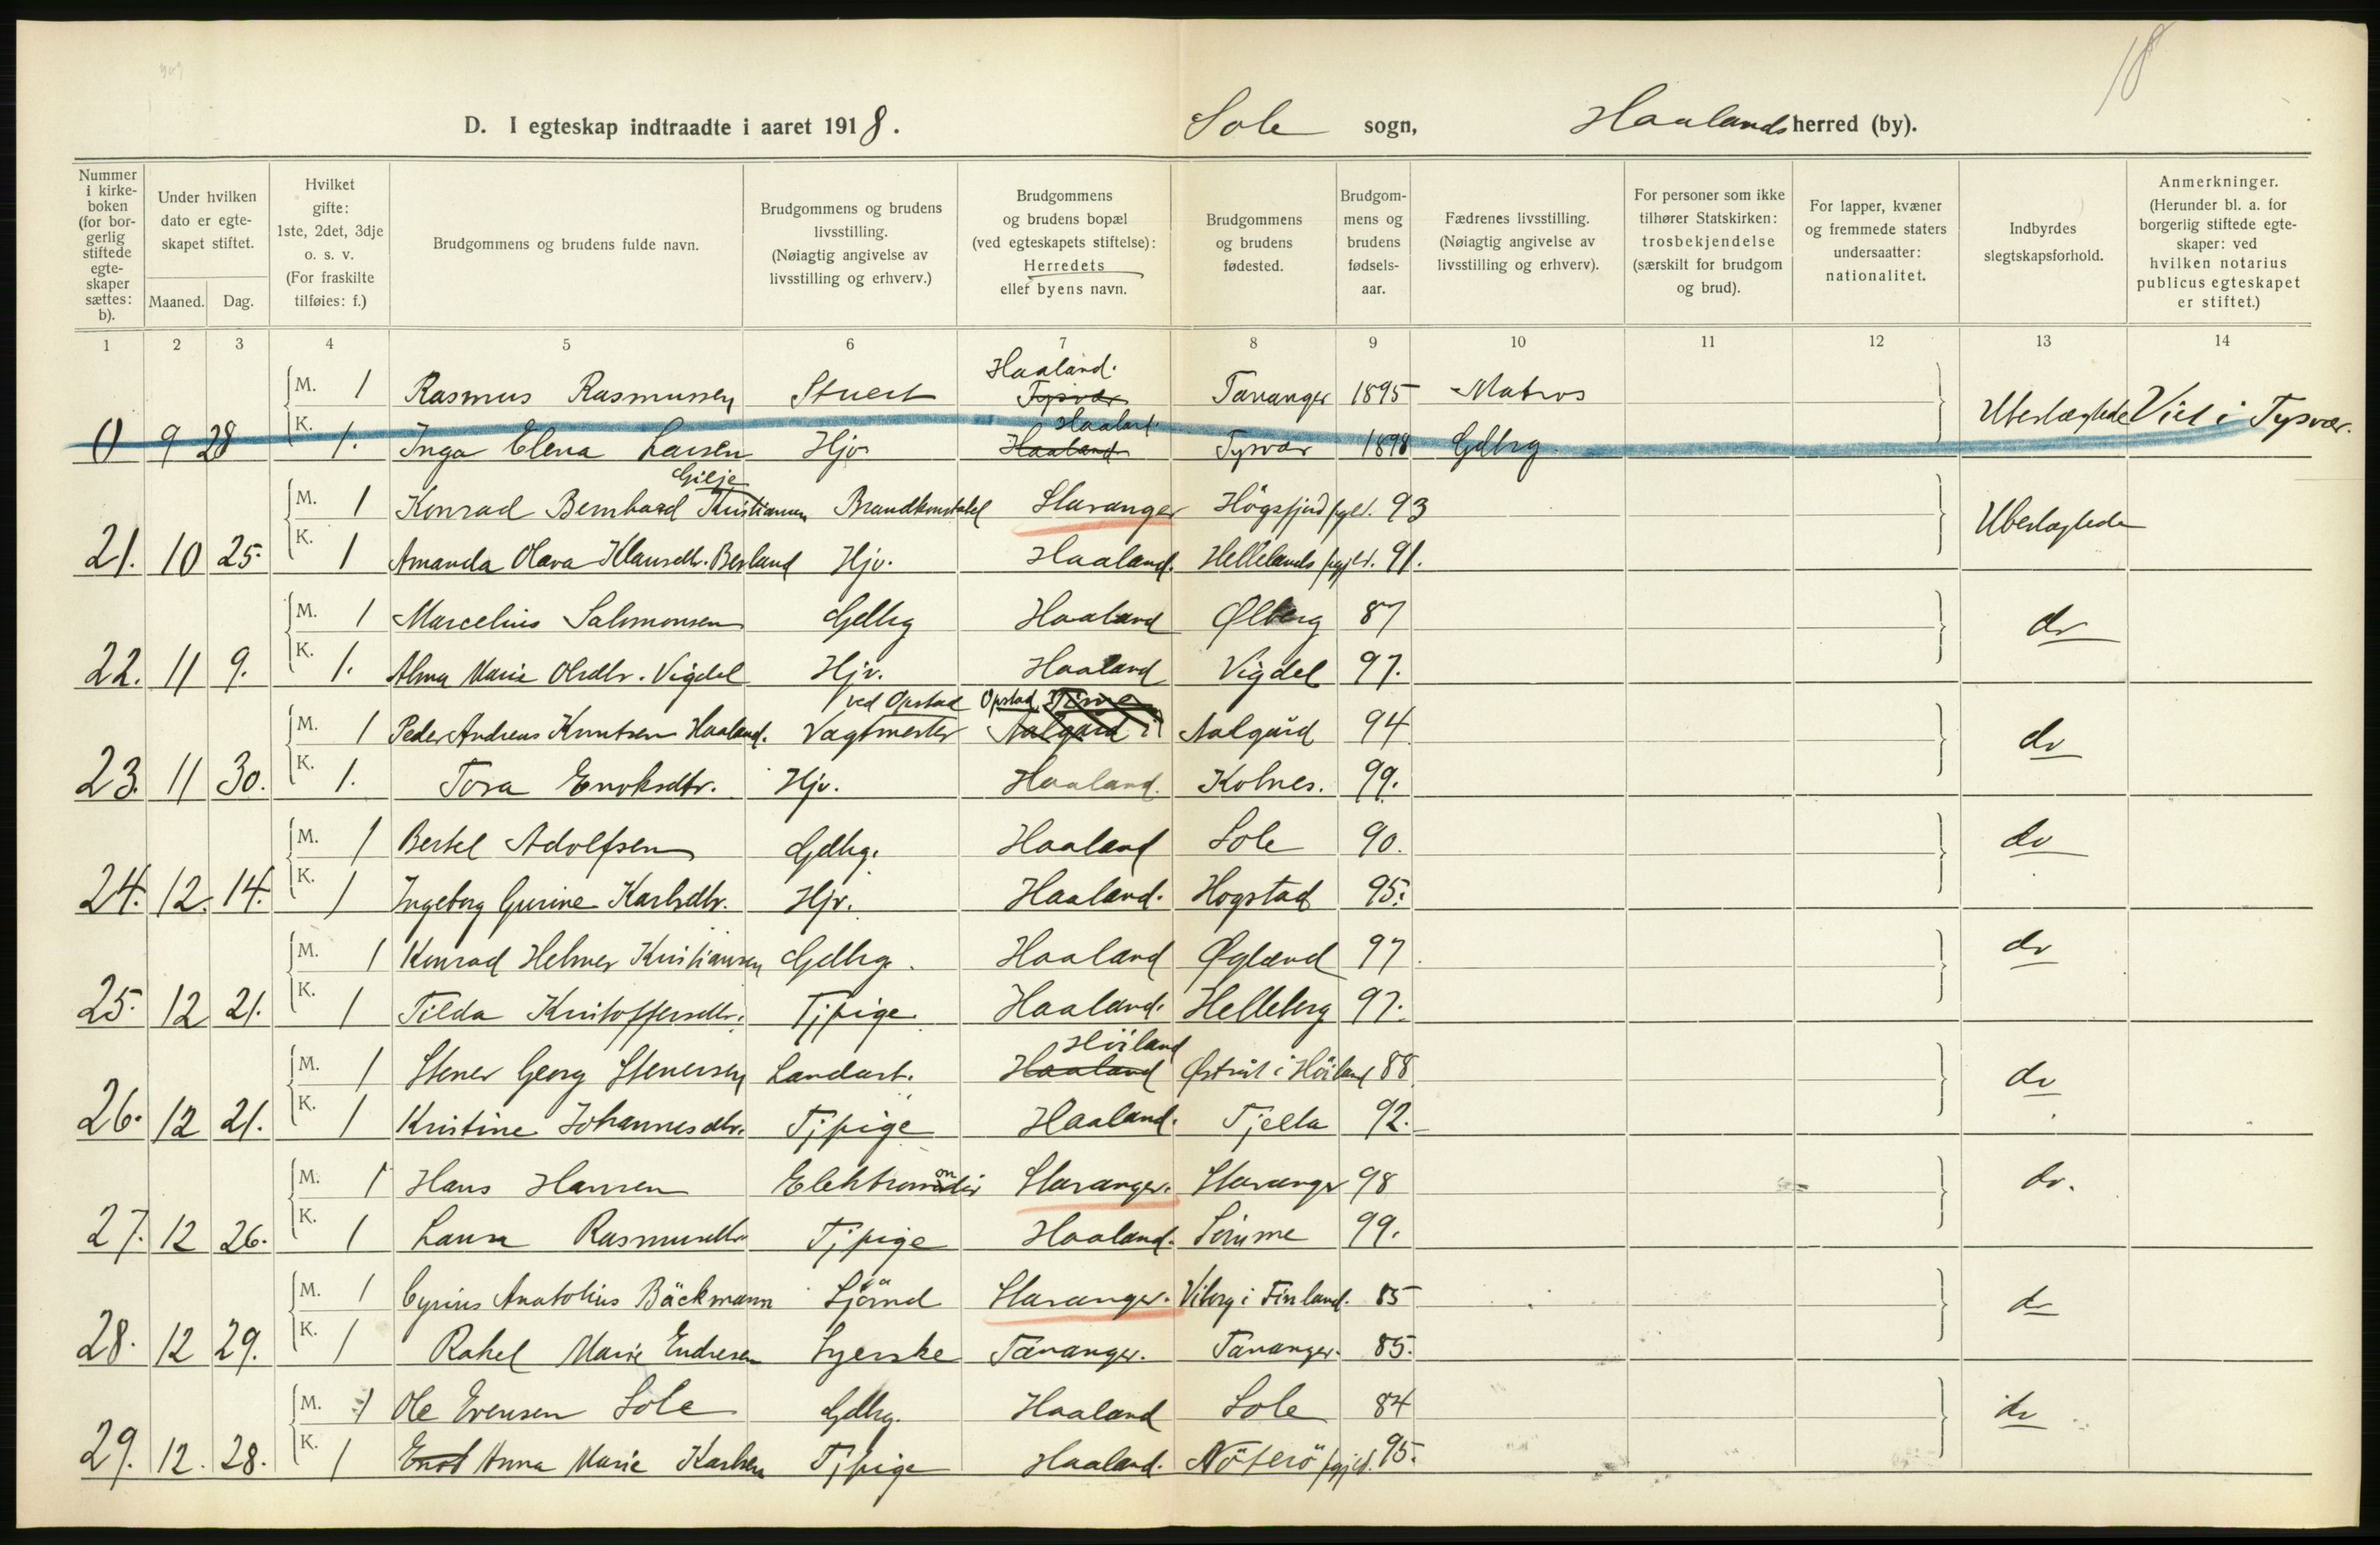 18
D. I egteskap indtraadte i aaret 1918. Sole sogn, Haalands herred (by).
Nummer i kirkeboken (for borgerlig stiftede egteskaper sættes: b).
Under hvilken dato er egteskapet stiftet.
Maaned. Dag.
Hvilket gifte: 1ste, 2det, 3dje o. s. v. (For fraskilte tilføies: f.)
Brudgommens og brudens fulde navn.
Brudgommens og brudens livsstilling. (Nøiagtig angivelse av livsstilling og erhverv.)
Brudgommens og brudens bopæl (ved egteskapets stiftelse): Herredets eller byens navn.
Brudgommens og brudens fødested.
Brudgommens og brudens fødselsaar.
Fædrenes livsstilling. (Nøiagtig angivelse av livsstilling og erhverv).
For personer som ikke tilhører Statskirken: trosbekjendelse (særskilt for brudgom og brud).
For lapper, kvæner og fremmede staters undersaatter: nationalitet.
Indbyrdes slegtskapsforhold.
Anmerkninger. (Herunder bl. a. for borgerlig stiftede egteskaper: ved hvilken notarius publicus egteskapet er stiftet.)
1 2 3 4 5 6 7 8 9 10 11 12 13 14
M. 1 Rasmus Rasmussen Stuert Haaland. Tysvær Tananger 1895 Matros
() 9 28 K. 1. Inga Elena Larsen Hjv Haaland. Haaland Tysvær 1898 Gdbrg Ubeslægtede Viet i Tysvær.
M. 1 Konrad Bernhard Kristiansen Gilje Brandkonstabel Stavanger Högsfjord pgld. 93
21. 10 25. K. 1 Amanda Olava Klausdtr. Berland Hjv. Haaland. Hellelands pgjld. 91. Ubeslægtede
M. 1 Marcelius Salomonsen Gdbrg Haaland Ølberg 87
22. 11 9. K. 1. Alma Marie Olsdtr. Vigdel Hjv. Haaland Vigdel 97. do
M. 1 Peder Andreas Knutsen Haaland. Vagtmester ved Opstad Opstad Time Aalgård i Aalgård 94
23. 11 30. K. 1. Tora Enoksdtr. Hjv. Haaland. Kolnes. 99. do
M. 1 Bertel Adolfsen Gdbrg. Haaland Sole 90.
24. 12. 14. K. 1 Ingeborg Gurine Karlsdtr. Hjv. Haaland. Hogstad 95. do
M. 1 Konrad Helmer Kristiansen Gdbrg. Haaland Øgland 97
25. 12 21. K. 1 Tilda Kristoffersdtr. Tjpige Haaland. Helleberg 97. do
M. 1 Stener Georg Stenersen Landarb. Haaland Höiland Østråt i Höiland 88
26. 12 21. K. 1 Kristine Johannesdtr. Tjpige Haaland. Tjella 92. do
M. 1 Hans Hansen Elektromontör Stavanger. Stavanger 98
27. 12 26. K. 1 Laura Rasmusdtr Tjpige Haaland. Sömme 99. do.
M. 1 Cyrius Anatolius Bäckmann Sjömd Stavanger. Viborg i Finland. 85
28. 12 29. K. 1 Rakel Marie Endresen Syerske Tananger. Tananger. 85. do
M. 1 Ole Evensen Sole Gdbrg. Haaland Sole 84
29. 12. 28. K. 1 Anna Marie Karlsen Tjpige Haaland. Nöterö pgjld. 95. do